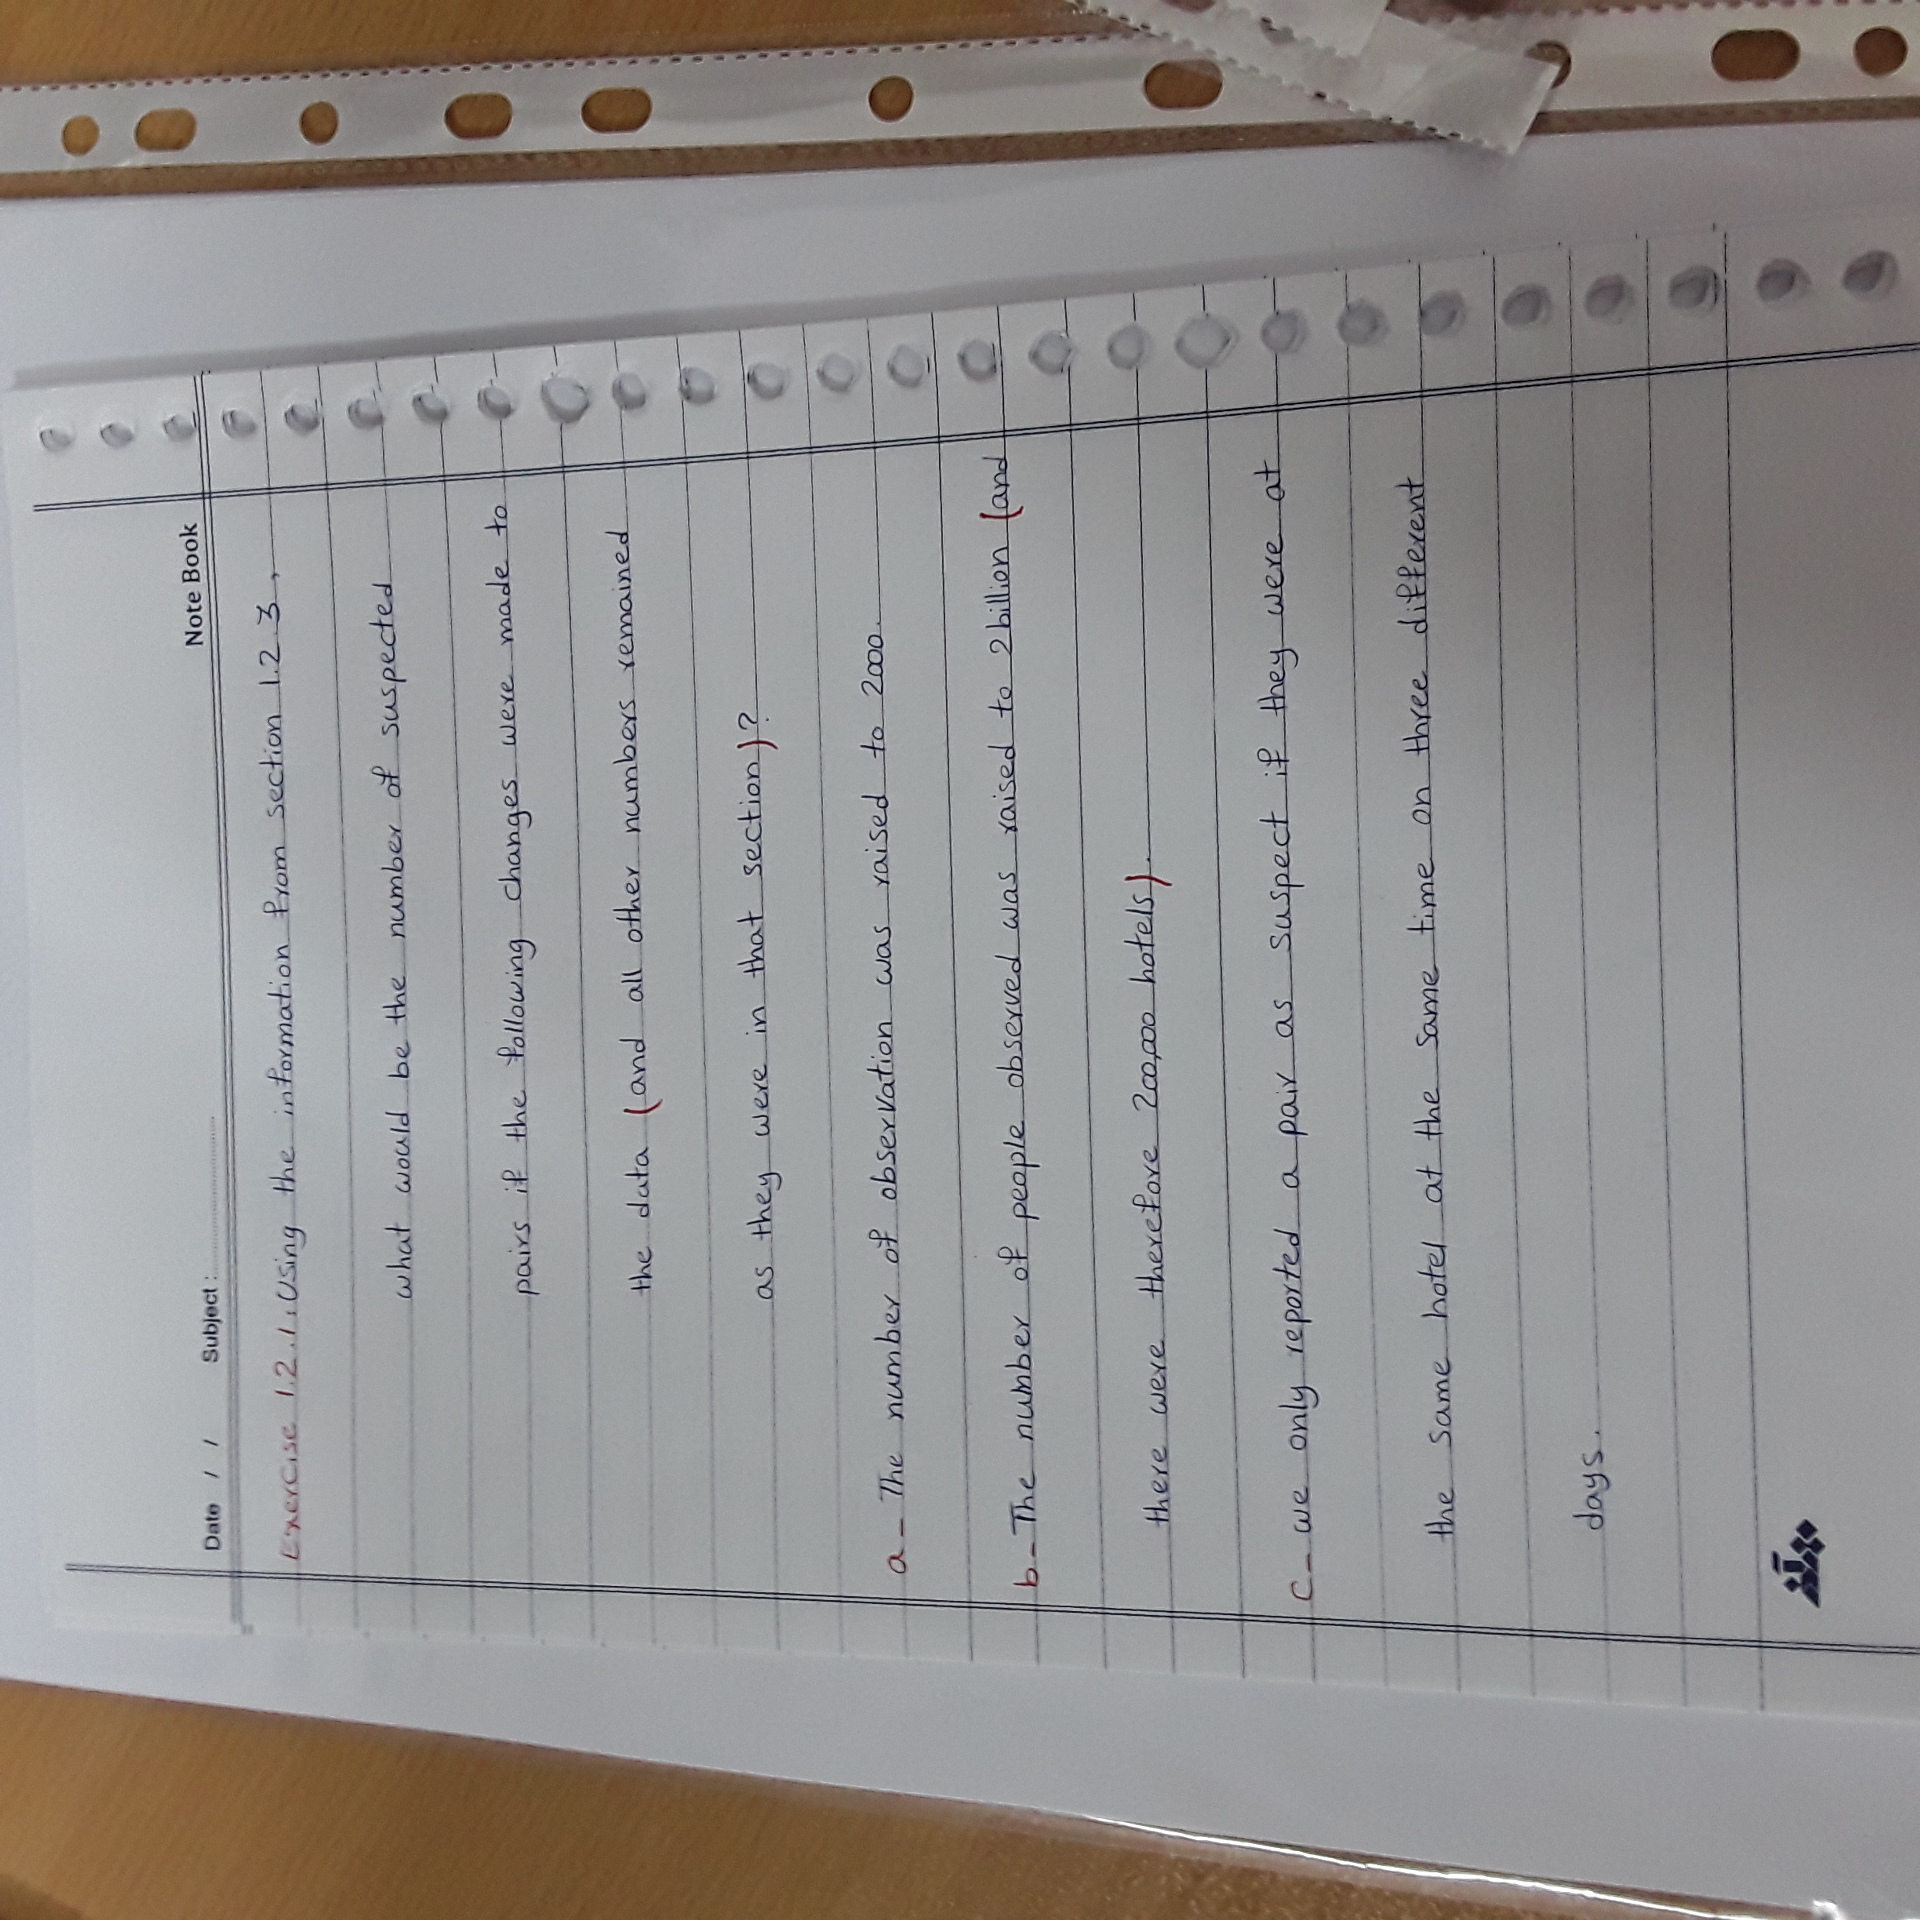 Note Book
Date / / Subject :
Exercise 1.2.1: Using the information from section 1.2.3,
what would be the number of suspected
pairs if the following changes were made to
the data (and all other numbers remained
as they were in that section)?
a - The number of observation was raised to 2000.
b - The number of people observed was raised to 2 billion (and
there were therefore 200,000 hotels).
c - we only reported a pair as suspect if they were at
the same hotel at the same time on three different
days.